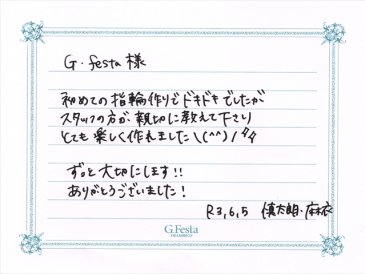 G.festa 様
初めての指輪作りでドキドキでしたが
スタッフの方が、親切に教えて下さり
とても楽しく作れました\(^^)/
ずっと大切にします!!
ありがとうございました!
R3,6,5 慎太朗・麻衣
G.Festa